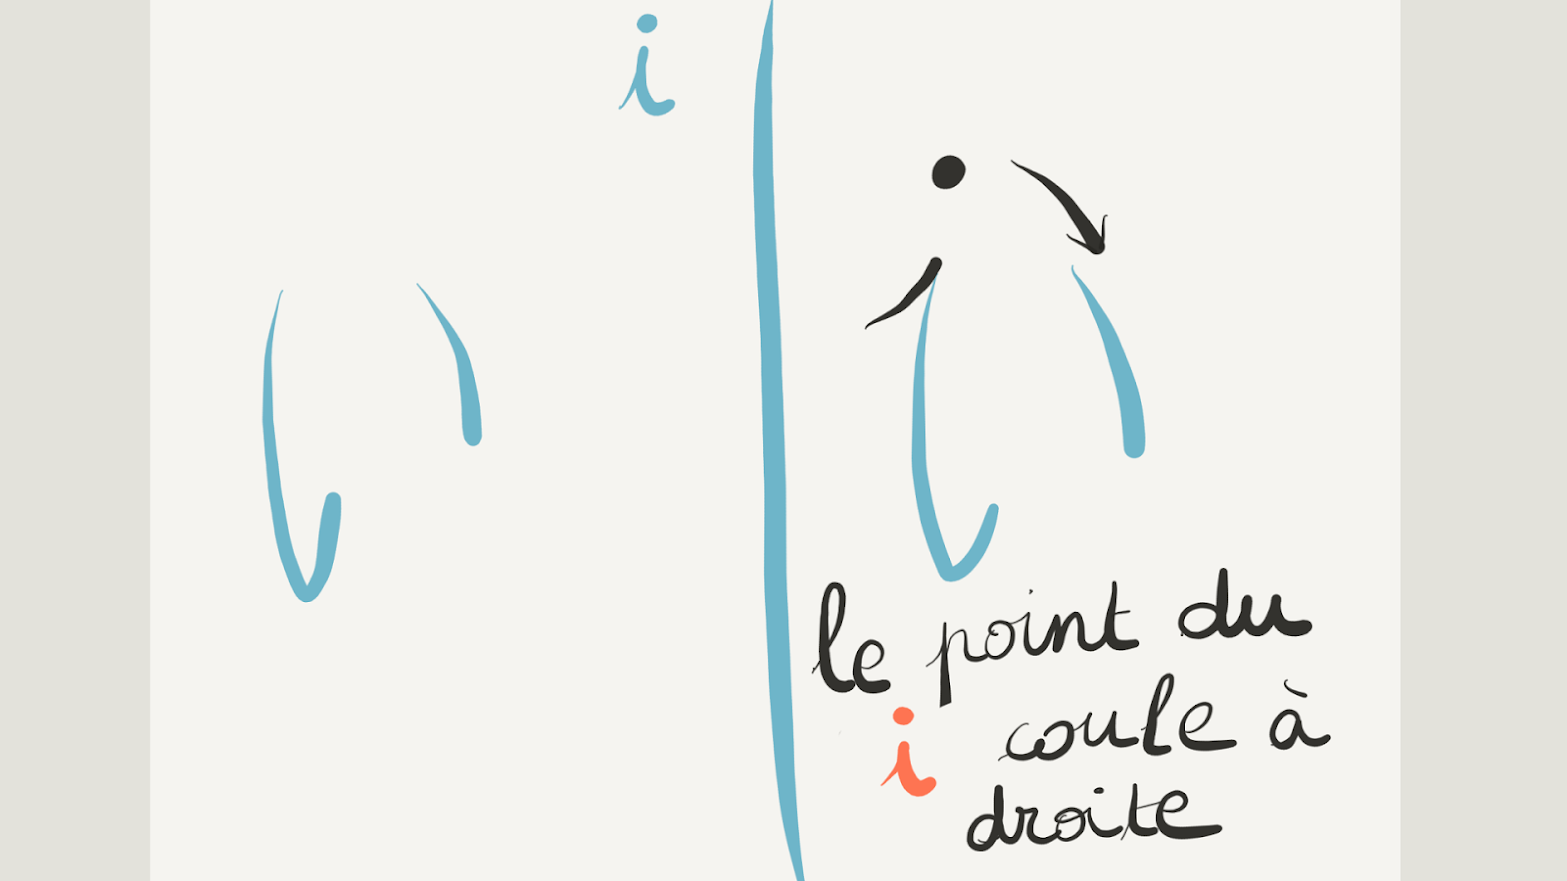 i
い
le point du
i coule à
droite